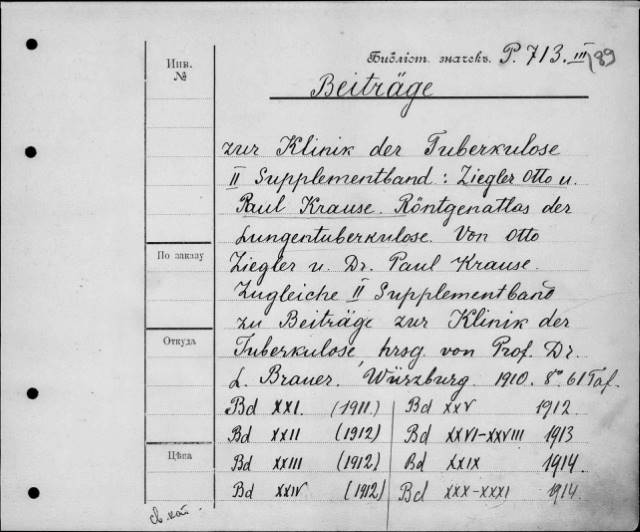 Инв. №
Библіот. значекъ. P. 713. III/89
Beiträge
zur Klinik der Tuberkulose
II Supplementband : Ziegler Otto u.
Paul Krause. Röntgenatlas der
Lungentuberkulose. Von Otto
По заказу
Ziegler u. Dr. Paul Krause.
Zugleiche II Supplementband
zu Beiträge zur Klinik der
Откуда
Tuberkulose, hrsg. von Prof. Dr.
L. Brauer. Würzburg. 1910. 8º 61 Taf.
Bd XXI. (1911.) Bd XXV 1912.
Bd XXII (1912) Bd XXVI-XXVIII 1913
Цѣна
Bd XXIII (1912) Bd XXIX 1914.
Bd XXIV (1912) Bd XXX-XXXI 1914.
св. кат.